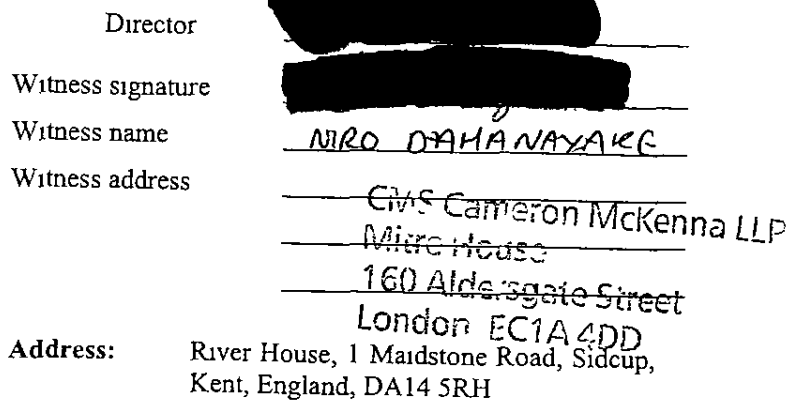 Director
Witness signature
Witness name NIRO DAHANAYAKE
Witness address
CMS Cameron McKenna LLP
Mitre House
160 Aldersgate Street
London EC1A 4DD
Address: River House, 1 Maidstone Road, Sidcup,
Kent, England, DA14 5RH